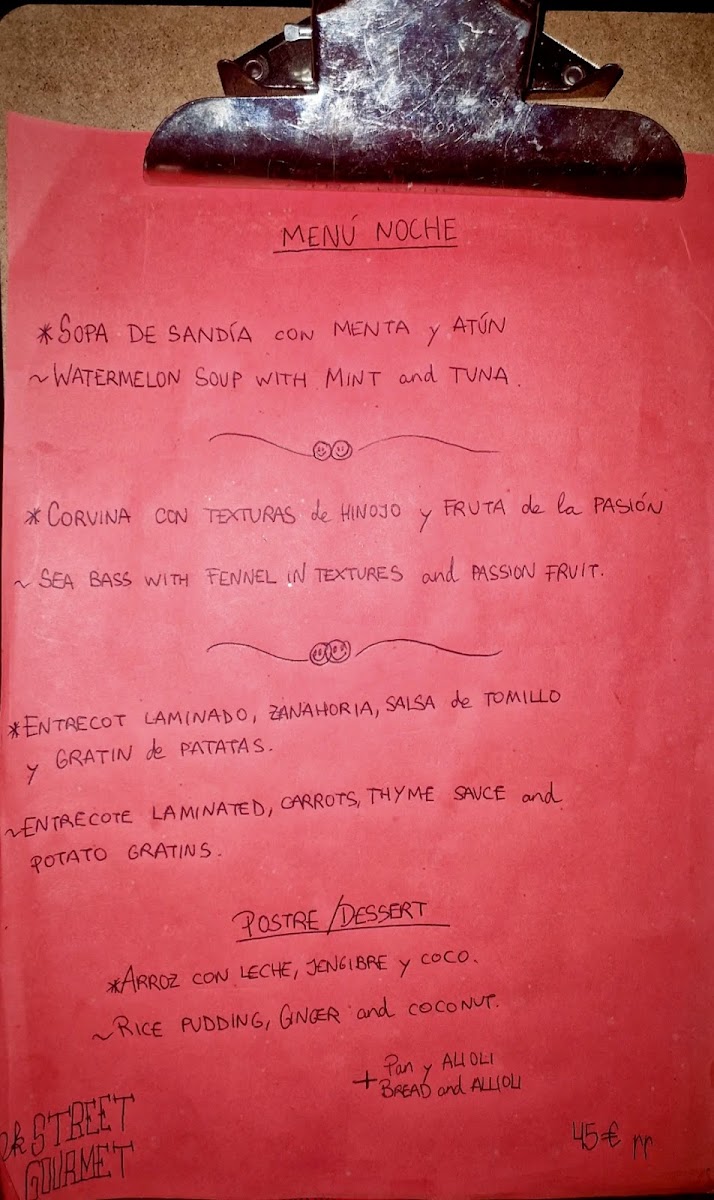 MENÚ NOCHE
*SOPA DE SANDÍA CON MENTA y ATÚN
~WATERMELON SOUP WITH MINT and TUNA.
* CORVINA CON TEXTURAS de HINOJO y FRUTA de la PASIÓN
~ SEA BASS WITH FENNEL IN TEXTURES and PASSION FRUIT.
*ENTRECOT LAMINADO, ZANAHORIA, SALSA de TOMILLO
y GRATIN de PATATAS.
~ENTRECOTE LAMINATED, CARROTS, THYME SAUCE and
POTATO GRATINS.
POSTRE/DESSERT
*ARROZ CON LECHE, JENGIBRE y COCO.
~RICE PUDDING, GINGER and COCONUT.
+ Pan y ALIOLI
BREAD and ALLIOLI
STREET
GOURMET
45€